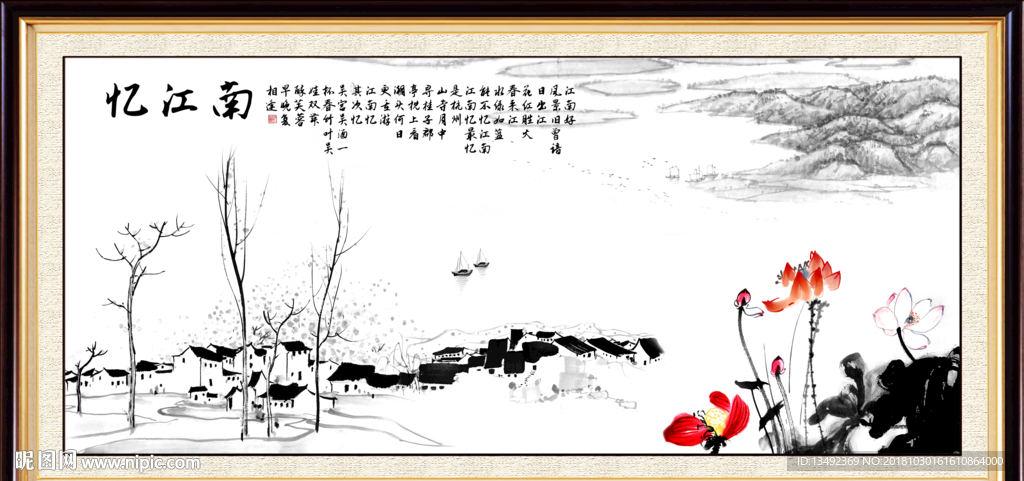 忆江南
江南好
风景旧曾谙
日出江
花红胜火
春来江
水绿如蓝
能不忆江南
江南忆最忆
是杭州
山寺月中
寻桂子郡
亭枕上看
潮头何日
更重游
江南忆
其次忆
吴宫吴酒一
杯春竹叶吴
娃双舞
醉芙蓉
早晚复
相逢
昵图网 www.nipic.com
ID:13492369 NO:20161030161610864000